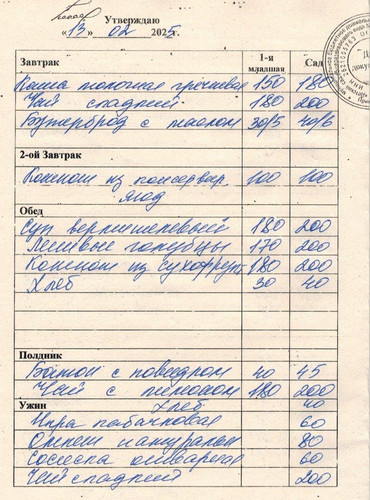 Утверждаю
«13» 02 2025г.
Завтрак 1-я младшая Сад
Каша молочная гречневая 150 180
Чай сладкий 180 200
Бутерброд с маслом 30/5 40/6
2-ой Завтрак
Компот из консервир. 100 100
ягод
Обед
Суп вермишелевый 180 200
Ленивые голубцы 170 200
Компот из сухофрукт. 180 200
Хлеб 30 40
Полдник
Батон с повидлом 40 45
Чай с лимоном 180 200
Ужин Хлеб 40
Икра кабачковая 60
Омлет натуральн 80
Сосиска отварная 60
Чай сладкий 200